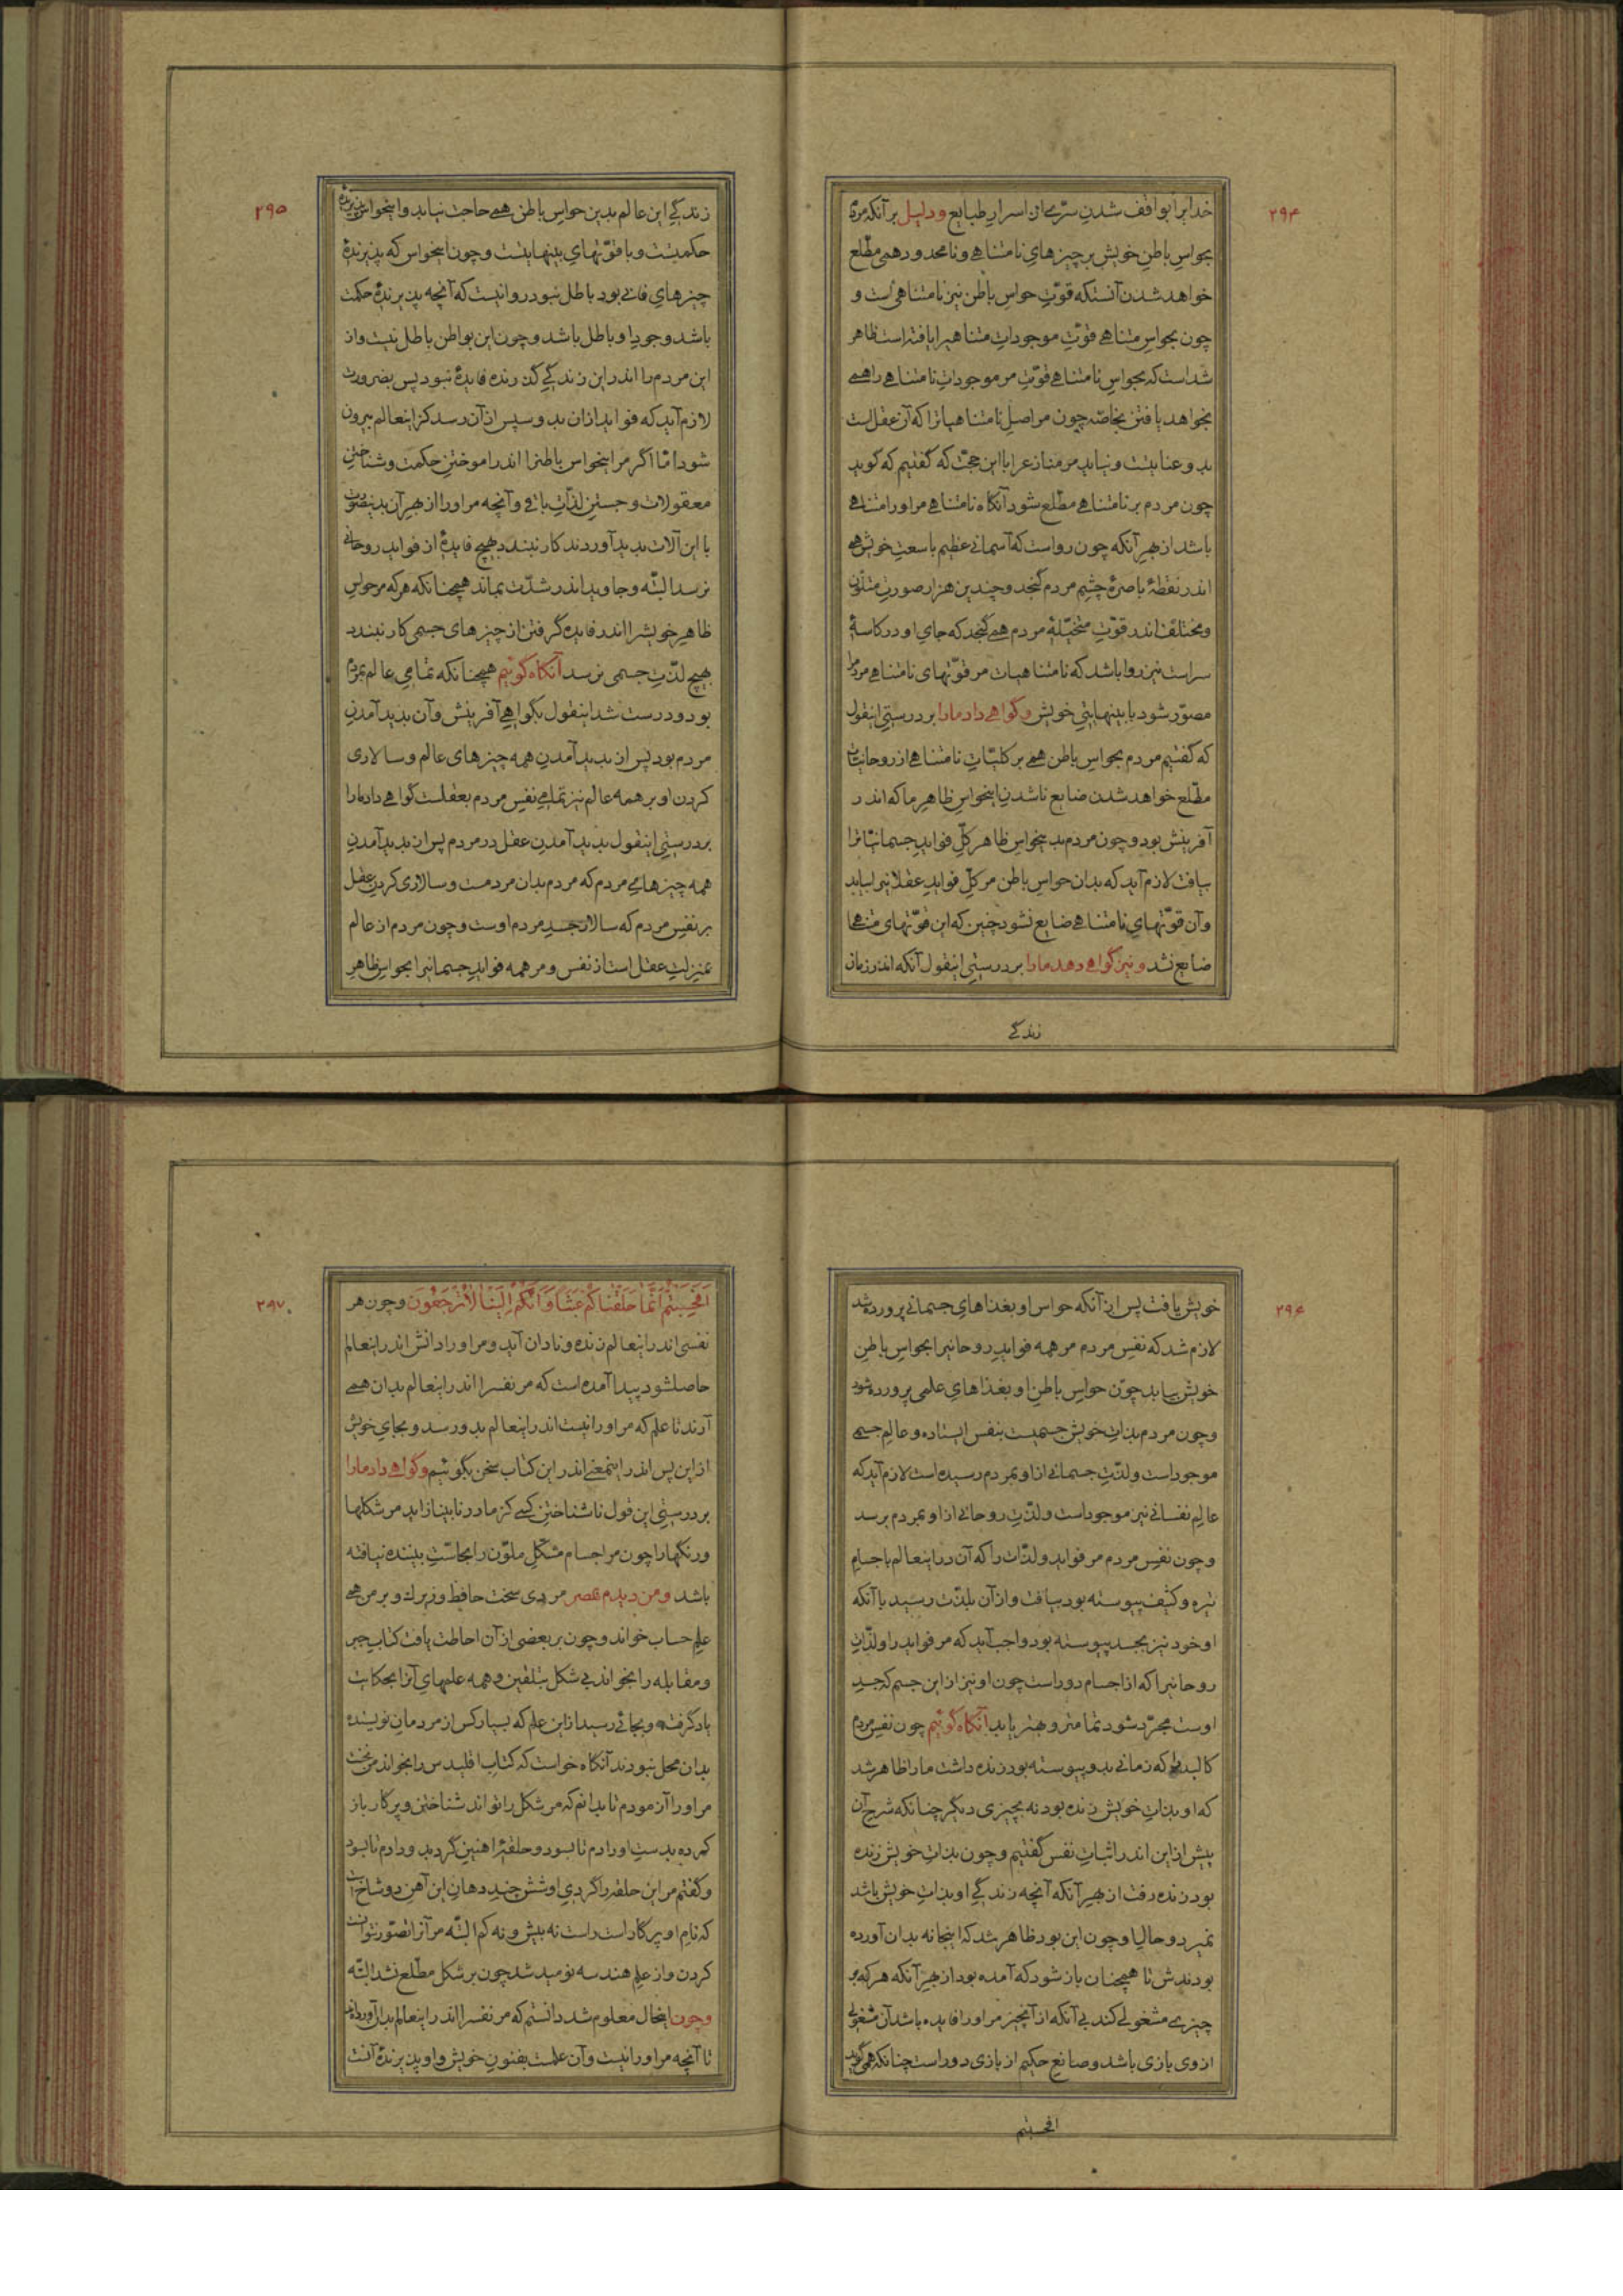 ۲۹۴
خدایرا بواقف شدن سرّے از اسرارِ طبایع و دلیل بر آنکه مردم
بحواسِ باطنِ خویش بر چیزهایِ نامتناهے و نامحدود همی مطّلع
خواهد شدن آنستکه قوّتِ حواسِ باطن نیز نامتناهی است و
چون بحواسِ متناهے قوّتِ موجوداتِ متناهیرا یافته است ظاهر
شداست که بحواسِ نامتناهے قوّتِ مر موجوداتِ نامتناهے را همے
بخواهد یافتن بخاصّه چون مر اصلِ نامتناهیاترا که آن عقلست
بدو عنایتست و نیاید مر منازعرا با این حجّت که گفتیم که گوید
چون مردم بر نامتناهے مطّلع شود آنگاه نامتناهے مر او را متناهے
باشد از بهرِ آنکه چون رواست که آسمانے عظیم با سعتِ خویش همے
اندر نقطهٔ باصرهٔ چشمِ مردم گنجد و چندین هزار صورتِ متلوّن
و مختلف اندر قوّتِ متخیّلهٔ مردم همے گنجد که جایِ او در کاسهٔ
سراست نیز روا باشد که نامتناهیات مر قوّتهای نامتناهے مردم را
مصوّر شود با بینهایتیِ خویش و گواهے داد مارا بر درستیِ اینقول
که گفتیم مردم بحواسِ باطن همے بر کلیّاتِ نامتناهے از روحانیات
مطّلع خواهد شدن ضایع ناشدنِ اینحواسِ ظاهرِ ما که اندر
آفرینش بود و چون مردم بدینحواسِ ظاهر کلِّ فوایدِ جسمانیّاترا
بیافت لازم آید که بدان حواسِ باطن مر کلِّ فوایدِ عقلانیرا بیابد
و آن قوّتهایِ نامتناهے ضایع نشود چنین که این قوّتهای متناهے
ضایع نشد و نیز گواهے دهد مارا بر درستیِ اینقول آنکه اندر زمان
زندگے
۲۹۵
زندگےِ این عالم بدین حواسِ باطن همے حاجت نیاید و اینحواس پذیرندهٔ
حکمتست و با قوّتهایِ بینهایتست و چون اینحواس که پذیرندهٔ
چیزهایِ فانے بود باطل نبود روا نیست که آنچه پذیرندهٔ حکمت
باشد وجودِ او باطل باشد و چون این بواطن باطل نیست و از
این مردم را اندر این زندگےِ گذرنده فایدهٔ نبود پس بضرورت
لازم آید که فواید از آن بدو سپس از آن رسد کز اینعالم بیرون
شود امّا اگر مر اینحواسِ باطنرا اندر اموختنِ حکمت و شناختنِ
معقولات و جستنِ لذّاتِ باقے و آنچه مر او را از بهرِ آن بدینصورت
با این آلات پدید آوردند کار نبندد بهیچ فایدهٔ از فوایدِ روحانے
نرسد البتّه و جاوید اندر شدّت بماند همچنانکه هر که مر حواسِ
ظاهرِ خویشرا اندر فایده گرفتن از چیزهای جسمی کار نبندد
بهیچ لذّتِ جسمی نرسد آنگاه گوئیم همچنانکه تمامیِ عالم بمردم
بود و درست شد اینقول بگواهےِ آفرینش و آن پدید آمدنِ
مردم بود پس از پدید آمدنِ همه چیزهای عالم و سالاری
کردن او بر همه عالم نیز تمامےِ نفسِ مردم بعقلست گواهے داد مارا
بر درستیِ اینقول پدید آمدنِ عقل در مردم پس از پدید آمدنِ
همه چیزهایِ مردم که مردم بدان مردمست و سالاری کردنِ عقل
بر نفسِ مردم که سالارِ جسدِ مردم اوست و چون مردم از عالم
بمنزلتِ عقل است از نفس و مر همه فوایدِ جسمانیرا بحواسِ ظاهرِ
۲۹۶
خویش یافت پس از آنکه حواسِ او بغذاهایِ جسمانے پرورده شد
لازم شد که نفسِ مردم مر همه فوایدِ روحانیرا بحواسِ باطنِ
خویش بیابد چون حواسِ باطنِ او بغذاهایِ علمی پرورده شود
و چون مردم بذاتِ خویش جسمیست بنفس ایستاده و عالمِ جسمے
موجود است و لذّتِ جسمانے از او بمردم رسیده است لازم آید که
عالمِ نفسانے نیز موجود است و لذّتِ روحانے از او بمردم برسد
و چون نفسِ مردم مر فواید و لذّات را که آن در اینعالم با جسامِ
تیره و کثیف پیوسته بود بیافت و از آن بلذّت رسید با آنکه
او خود نیز بجسد پیوسته بود واجب آید که مر فواید را و لذّاتِ
روحانیرا که از اجسام دور است چون او نیز از این جسم که جسدِ
اوست مجرّد شود تمامتر و بهتر یابد آنگاه گوئیم چون نفسِ مردم
کالبد را که زمانے بدو پیوسته بود زنده داشت مارا ظاهر شد
که او بذاتِ خویش زنده بود نه بچیزی دیگر چنانکه شرحِ آن
پیش از این اندر اثباتِ نفس گفتیم و چون بذاتِ خویش زنده
بود زنده رفت از بهرِ آنکه آنچه زندگےِ او بذاتِ خویش باشد
نمیرد و حالیا و چون این بود ظاهر شد که اینجا نه بدان آورده
بودندش تا همچنان باز شود که آمده بود از بهرِ آنکه هر که بر
چیزے مشغولے کند بے آنکه از آنچیز مر او را فایده باشد آن مشغولے
از وی بازی باشد و صانعِ حکیم از بازی دور است چنانکه همی گوید
افحسبتم
۲۹۷
اَفَحَسِبْتُمْ اَنَّمَا خَلَقْنَاکُمْ عَبَثًا وَ اَنَّکُمْ اِلَیْنَا لَا تُرْجَعُونَ و چون هر
نفسی اندر اینعالم زنده و نادان آید و مر او را دانش اندر اینعالم
حاصلشود پیدا آمده است که مر نفسرا اندر اینعالم بدان همے
آرند تا علم که مر او را نیست اندر اینعالم بدو رسد و بجایِ خویش
از این پس اندر اینمعنے اندر این کتاب سخن بگوئیم و گواهے داد مارا
بر درستیِ این قول ناشناختنِ کسے کز مادر نابینا زاید مر شکلها
و رنگها را چون مر اجسامِ مشکّلِ ملوّن را بحاسّتِ بیننده نیافته
باشد و من دیدم بمصر مردی سخت حافظ و زیرك و بر من همے
علمِ حساب خواند و چون بر بعضی از آن احاطت یافت کتابِ جبر
و مقابله را بخواند بے شکل بتلقین و همه علمهایِ آنرا بحکایت
یاد گرفت و بجائے رسید از این علم که بسیار کس از مردمانِ نویسنده
بدان محل نبودند آنگاه خواست که کتابِ اقلیدس را بخواند من نخست
مر او را آزمودم تا بدانم که مر شکل را تواند شناختن و پرگار باز
کرده بدستِ او دادم تا بسود و حلقهٔ آهنین گرد بدو دادم تا بسود
و گفتم مر این حلقه را گردیِ او شش چندِ دهانِ این آهنِ دو شاخ است
که نامِ او پرگار است راست نه بیش و نه کم البتّه مر آنرا تصوّر نتوانست
کردن و از علمِ هندسه نومید شد چون بر شکل مطّلع نشد البتّه
و چون اینحال معلوم شد دانستم که مر نفسرا اندر اینعالم بدان آورده‌اند
تا آنچه مر او را نیست و آن علمست بفنونِ خویش و او پذیرندهٔ آنست